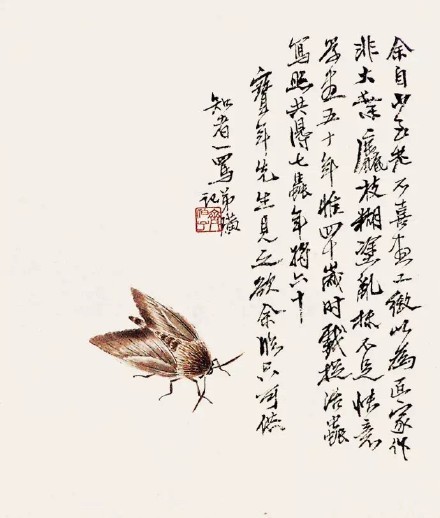 余自少至老不喜畫工緻以為畫家作
非大葉麤枝糊塗亂抹不足快意
學畫五十年惟四十歲時戲捉活蟲
寫照共得七蟲年將六十
寶辰先生見之欲余臨只可供
知者一罵弟璜記